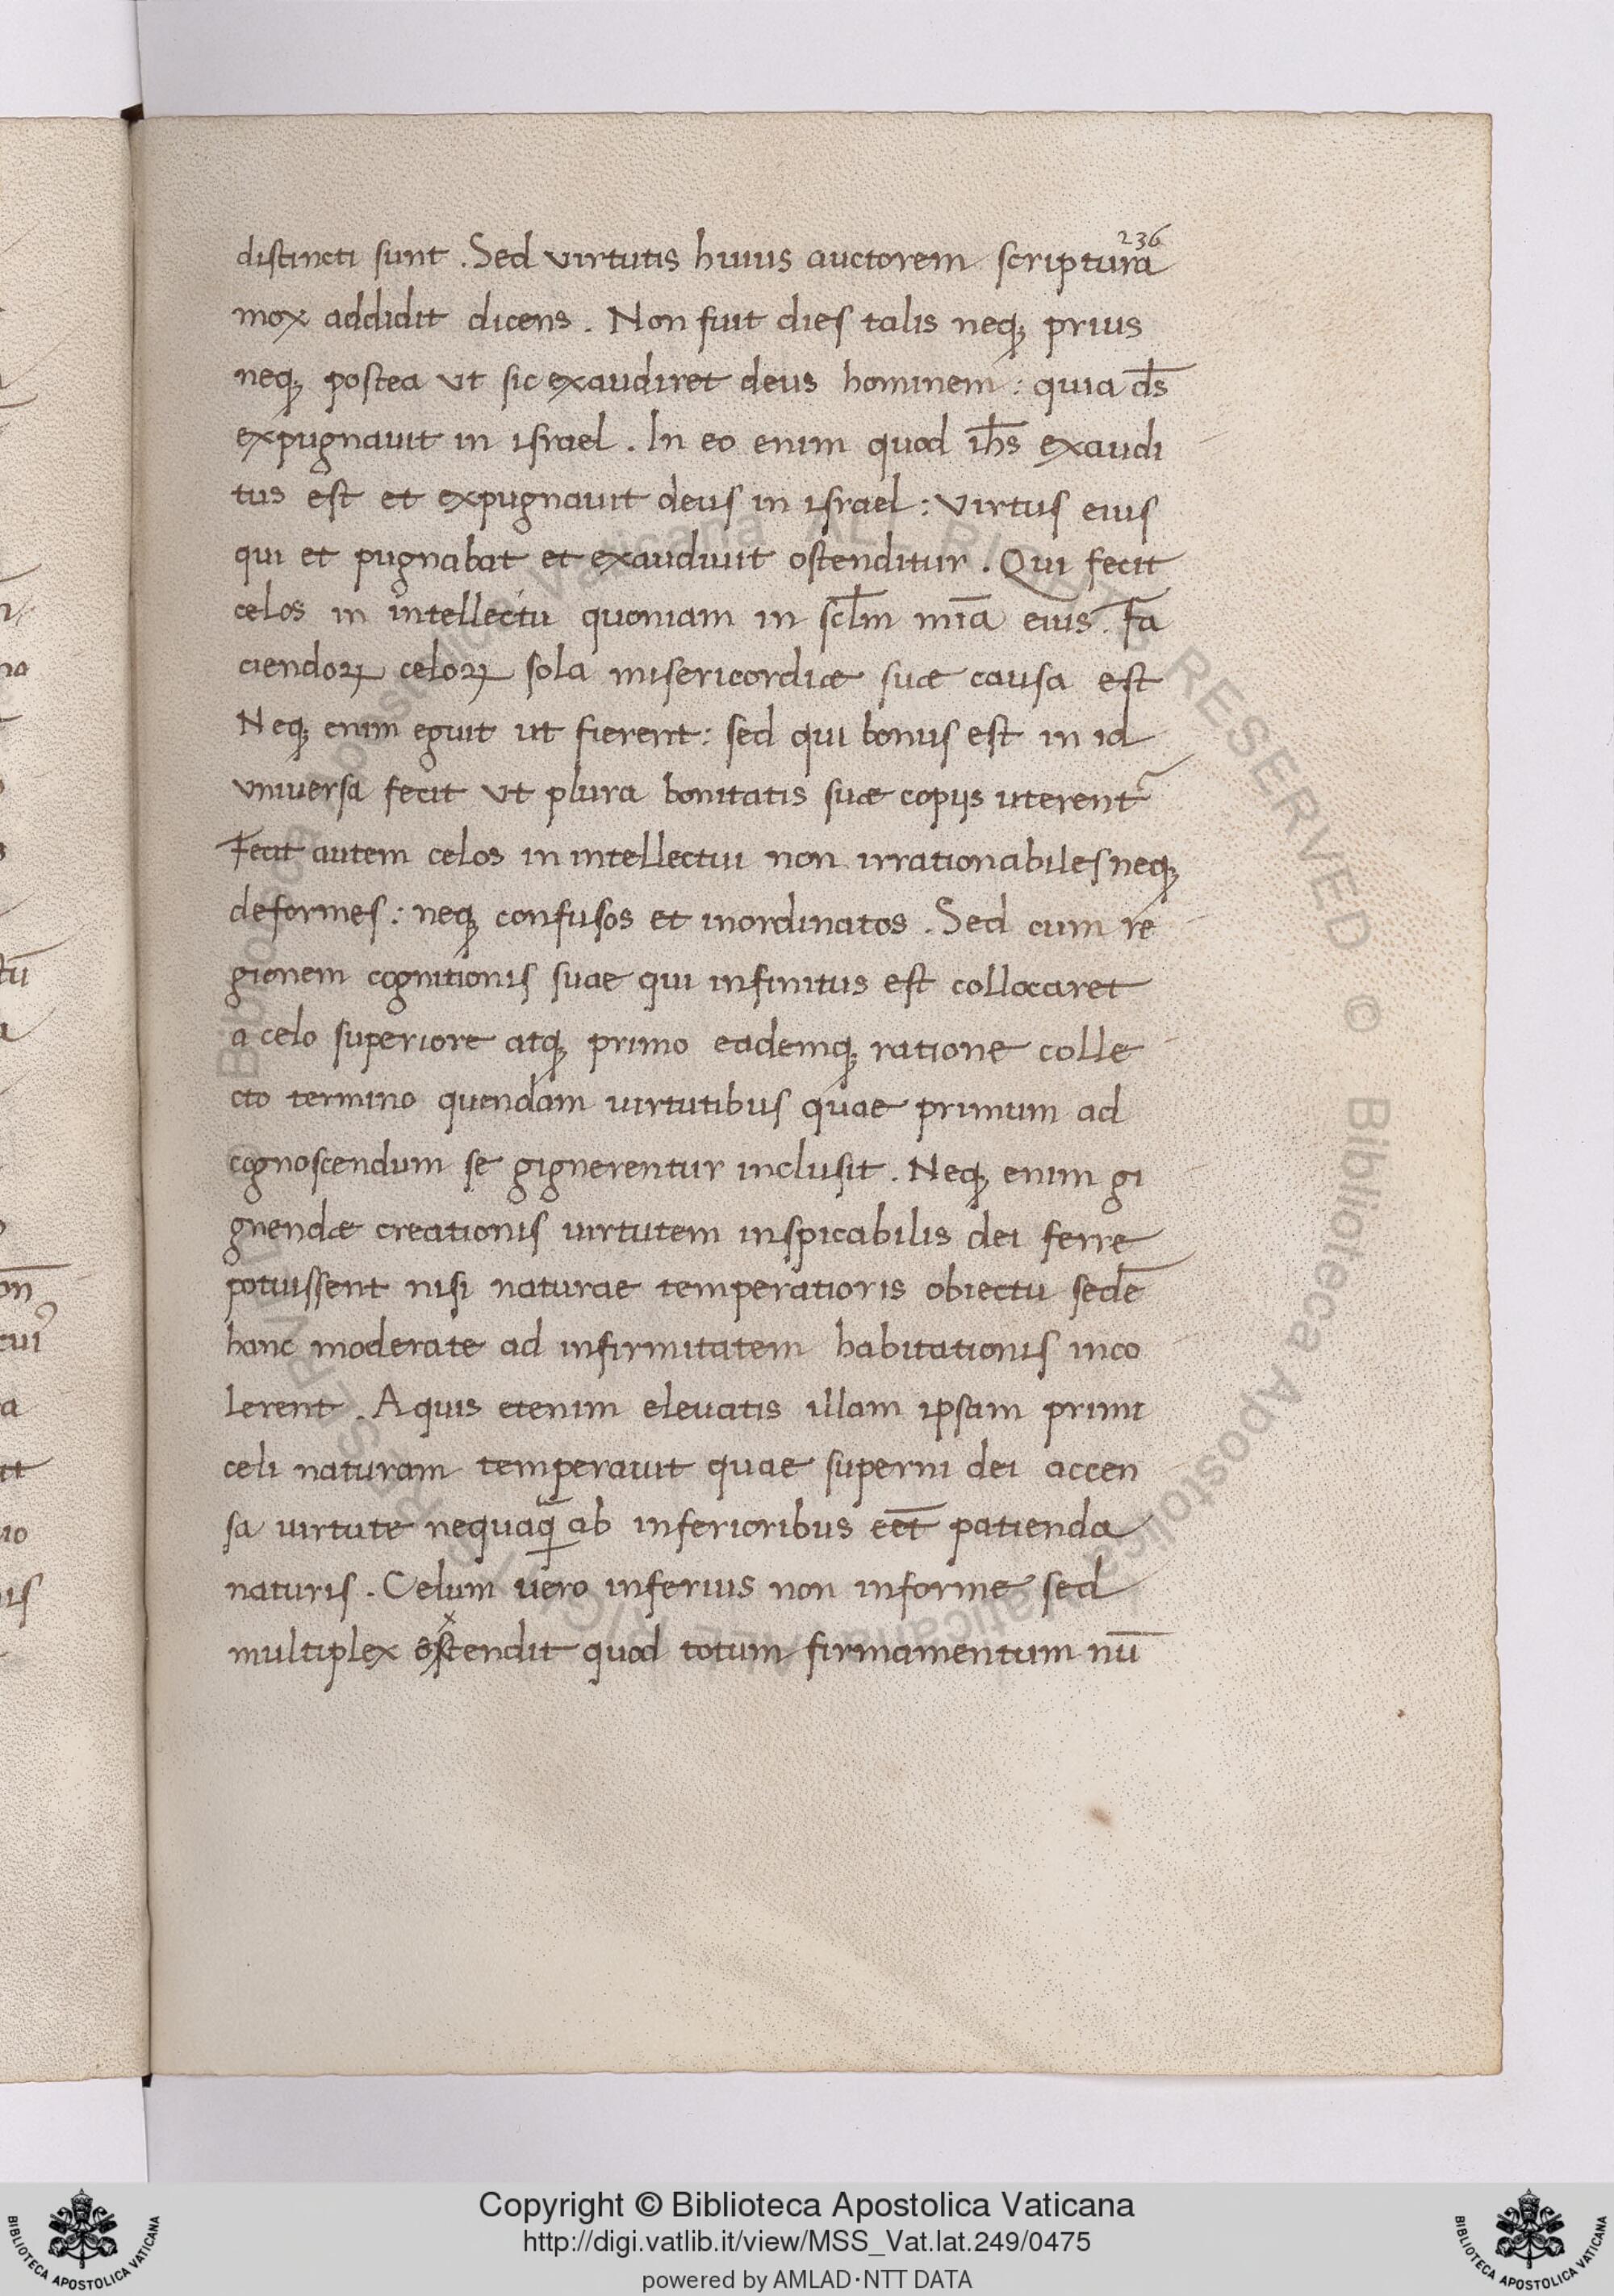 236
distincti sunt . Sed virtutis huius auctorem scriptura
mox addidit dicens . Non fuit dies talis neqꝫ prius
neqꝫ postea vt sic exaudiret deus hominem : quia ds̄
expugnauit in israel . In eo enim quod ih̄s exaudi
tus est et expugnauit deus in israel : virtus eius
qui et pugnabat et exaudiuit ostenditur . Qui fecit
celos in intellectu quoniam in scl̄m mīa eius . Fa
ciendoꝝ celoꝝ sola misericordiæ suæ causa est
Neqꝫ enim eguit ut fierent : sed qui bonus est in id
vniuersa fecit vt plura bonitatis suæ copijs uterent᷑
Fecit autem celos in intellectu non irrationabiles neqꝫ
deformes : neqꝫ confusos et inordinatos . Sed cum re
gionem cognitionis suae qui infinitus est collocaret
a celo superiore atqꝫ primo eademqꝫ ratione colle
cto termino quendam uirtutibus quae primum ad
cognoscendum se gignerentur inclusit . Neqꝫ enim gi
gnendæ creationis uirtutem inspicabilis dei ferre
potuissent nisi naturae temperatioris obiectu sedē
hanc moderate ad infirmitatem habitationis inco
lerent . Aquis etenim eleuatis illam ipsam primi
celi naturam temperauit quae superni dei accen
sa uirtute nequaq̄ ab inferioribus eēt patienda
naturis . Celum uero inferius non informe sed
multiplex ostendit quod totum firmamentum nū
Biblioteca Apostolica Vaticana ALL RIGHTS RESERVED © Biblioteca Apostolica Vaticana ALL RIGHTS RESERVED ©
Copyright © Biblioteca Apostolica Vaticana
http://digi.vatlib.it/view/MSS_Vat.lat.249/0475
powered by AMLAD·NTT DATA
BIBLIOTECA APOSTOLICA VATICANA
BIBLIOTECA APOSTOLICA VATICANA